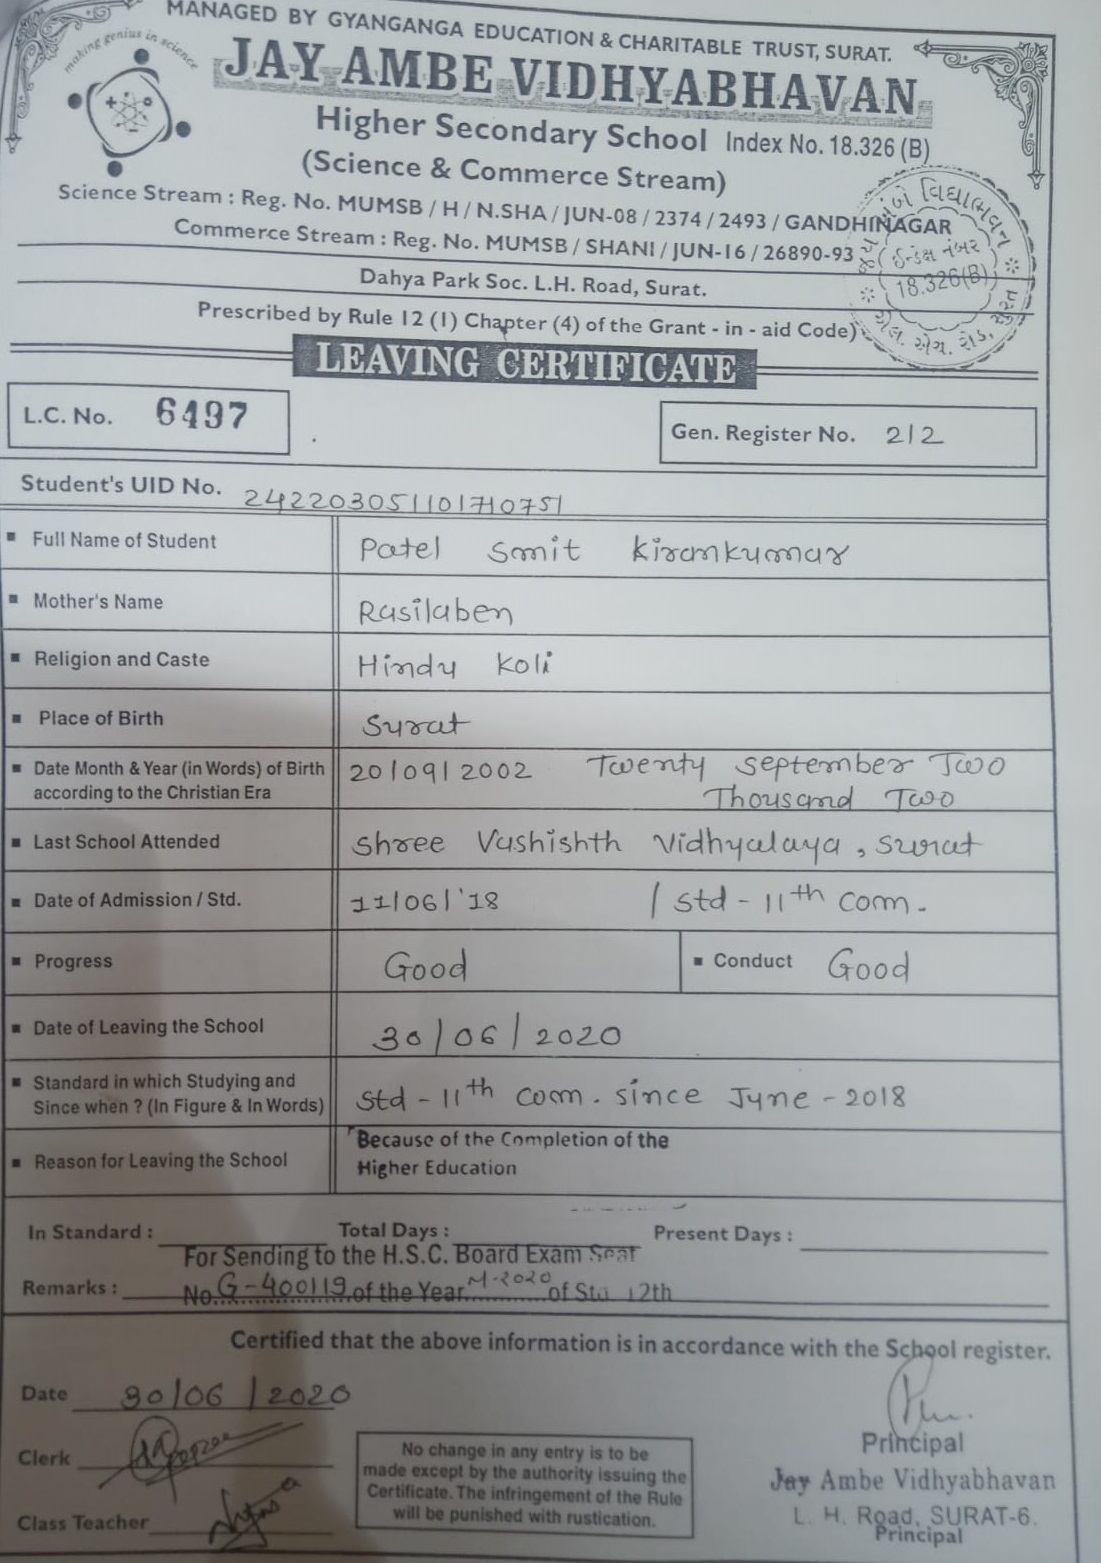 MANAGED BY GYANGANGA EDUCATION & CHARITABLE TRUST, SURAT.
making genius in science
JAY AMBE VIDHYABHAVAN
Higher Secondary School Index No. 18.326 (B)
(Science & Commerce Stream)
Science Stream : Reg. No. MUMSB / H / N.SHA / JUN-08 / 2374 / 2493 / GANDHINAGAR
Commerce Stream : Reg. No. MUMSB / SHANI / JUN-16 / 26890-93
Dahya Park Soc. L.H. Road, Surat.
વિદ્યાભવન
ઈન્ડેક્ષ નંબર
18.326(B)
એલ. એચ. રોડ, સુરત
Prescribed by Rule 12 (1) Chapter (4) of the Grant - in - aid Code)
LEAVING CERTIFICATE
L.C. No. 6497
Gen. Register No. 212
Student's UID No.
Full Name of Student Patel Smit Kirankumar
Mother's Name Rasilaben
Religion and Caste Hindu Koli
Place of Birth Surat
Date Month & Year (in Words) of Birth 20/09/2002 Twenty September Two
according to the Christian Era Thousand Two
Last School Attended Shree Vashishth Vidhyalaya, Surat
Date of Admission / Std. 11/06/'18 / Std - 11th com.
Progress Good Conduct Good
Date of Leaving the School 30/06/2020
Standard in which Studying and
Since when ? (In Figure & In Words) Std - 11th com. since June - 2018
Because of the Completion of the
Reason for Leaving the School
Higher Education
In Standard : Total Days : Present Days :
For Sending to the H.S.C. Board Exam Seat
Remarks : No. G-400119 of the Year M-2020 of Std 12th
Certified that the above information is in accordance with the School register.
Date 30/06/2020
Clerk
Class Teacher
No change in any entry is to be
made except by the authority issuing the
Certificate. The infringement of the Rule
will be punished with rustication.
Principal
Jay Ambe Vidhyabhavan
L. H. Road, SURAT-6.
Principal